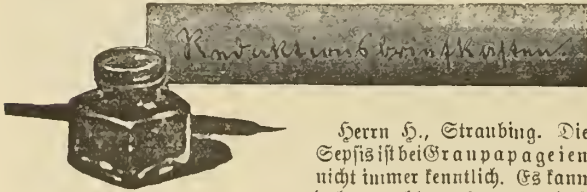 Redaktionsbriefkasten.
Herrn H., Straubing. Die
Sepsis ist bei Graupapageien
nicht immer kenntlich. Es kann